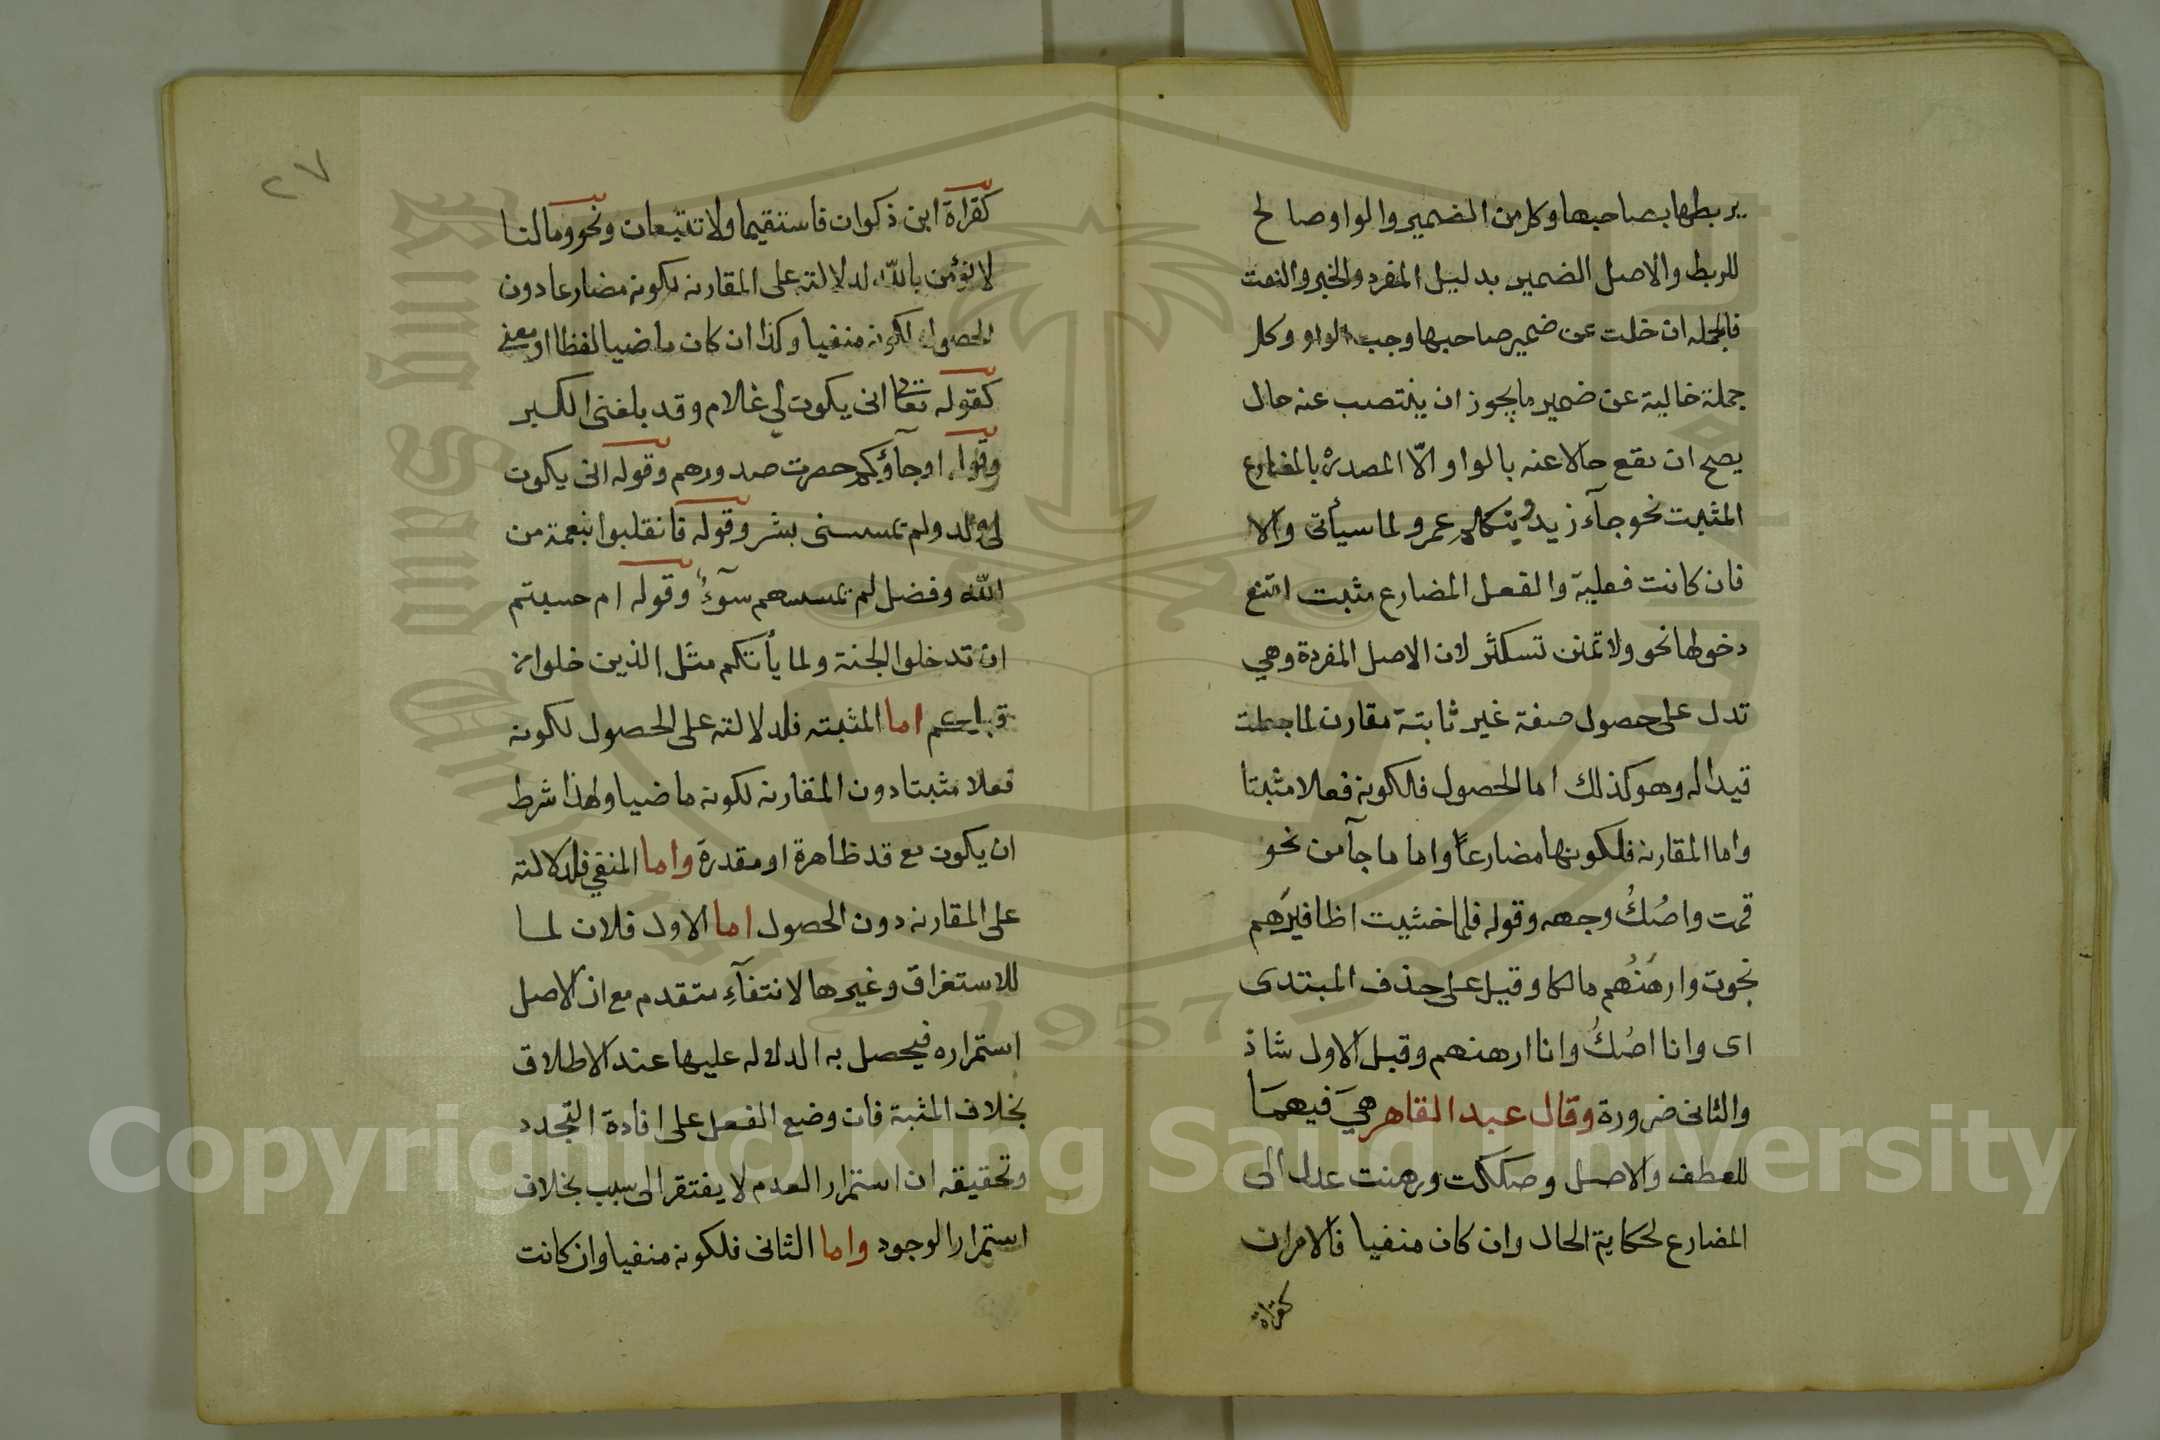 يربطها بصاحبها وكل من الضمير والواو صالح
للربط والاصل الضمير بدليل المفرد والخبر والنعت
فالجمله ان خلت عن ضمير صاحبها وجب الواو وكل
جملة خالية عن ضمير ما يجوز ان ينتصب عنه حال
يصح ان تقع حالا عنه بالواو الّا المصدرة بالمضارع
المثبت نحو جآء زيد ويتكلم عمرو لما سيأتى والا
فان كانت فعلية والفعل المضارع مثبت امتنع
دخولها نحو ولا تمنن تستكثر لان الاصل المفردة وهي
تدل على حصول صفة غير ثابتة مقارن لما جعلت
قيدا له وهو كذلك اما الحصول فالكونه فعلا مثبتا
واما المقارنه فلكونها مضارعًا واما ما جآ من نحو
قمت واصُكُ وجهه وقوله فلما خشيت اظافيرَهم
نجوت وارهَنُهم مالكا وقيل على حذف المبتدى
اى وانا اصُكُ وانا ارهنهم وقيل الاول شاذ
والثانى ضرورة وقال عبد القاهر هيَ فيهمَا
للعطف والاصل وصككت ورهنت عدل الى
المضارع لحكاية الحال وان كان منفيا فالامران
كقراة
٢٧
كقراة ابن ذكوان فاستقيما ولا تتبعان ونحو وما لنا
لا نؤمن بالله لدلالته على المقارنه لكونه مضارعا دون
الحصول لكونه منفيا وكذا ان كان ماضيا لفظا او معنى
كقوله تعالى انى يكون لي غلام وقد بلغنى الكبر
وقوله او جآؤكم حصرت صدورهم وقوله انى يكون
لى ولد ولم تمسسنى بشر وقوله فانقلبوا بنعمة من
الله وفضل لم تمسسهم سوٓءٌ وقوله ام حسبتم
ان تدخلوا الجنة ولما يأتكم مثل الذين خلوا من
قبلكم اما المثبته فلدلالته على الحصول لكونه
فعلا مثبتا دون المقارنه لكونه ماضيا ولهذا شرط
ان يكون مع قد ظاهرة او مقدرة واما المنفي فلدلالته
على المقارنه دون الحصول اما الاول فلان لما
للاستغراق وغيرها لانتفآءِ متقدم مع ان الاصل
استمراره فيحصل به الدلاله عليها عند الاطلاق
بخلاف المثبة فان وضع الفعل على افادة التجدد
وتحقيقه ان استمرار العدم لا يفتقر الى سبب بخلاف
استمرار الوجود واما الثانى فلكونه منفيا وان كانت
King Saud University
1957
Copyright © King Saud University